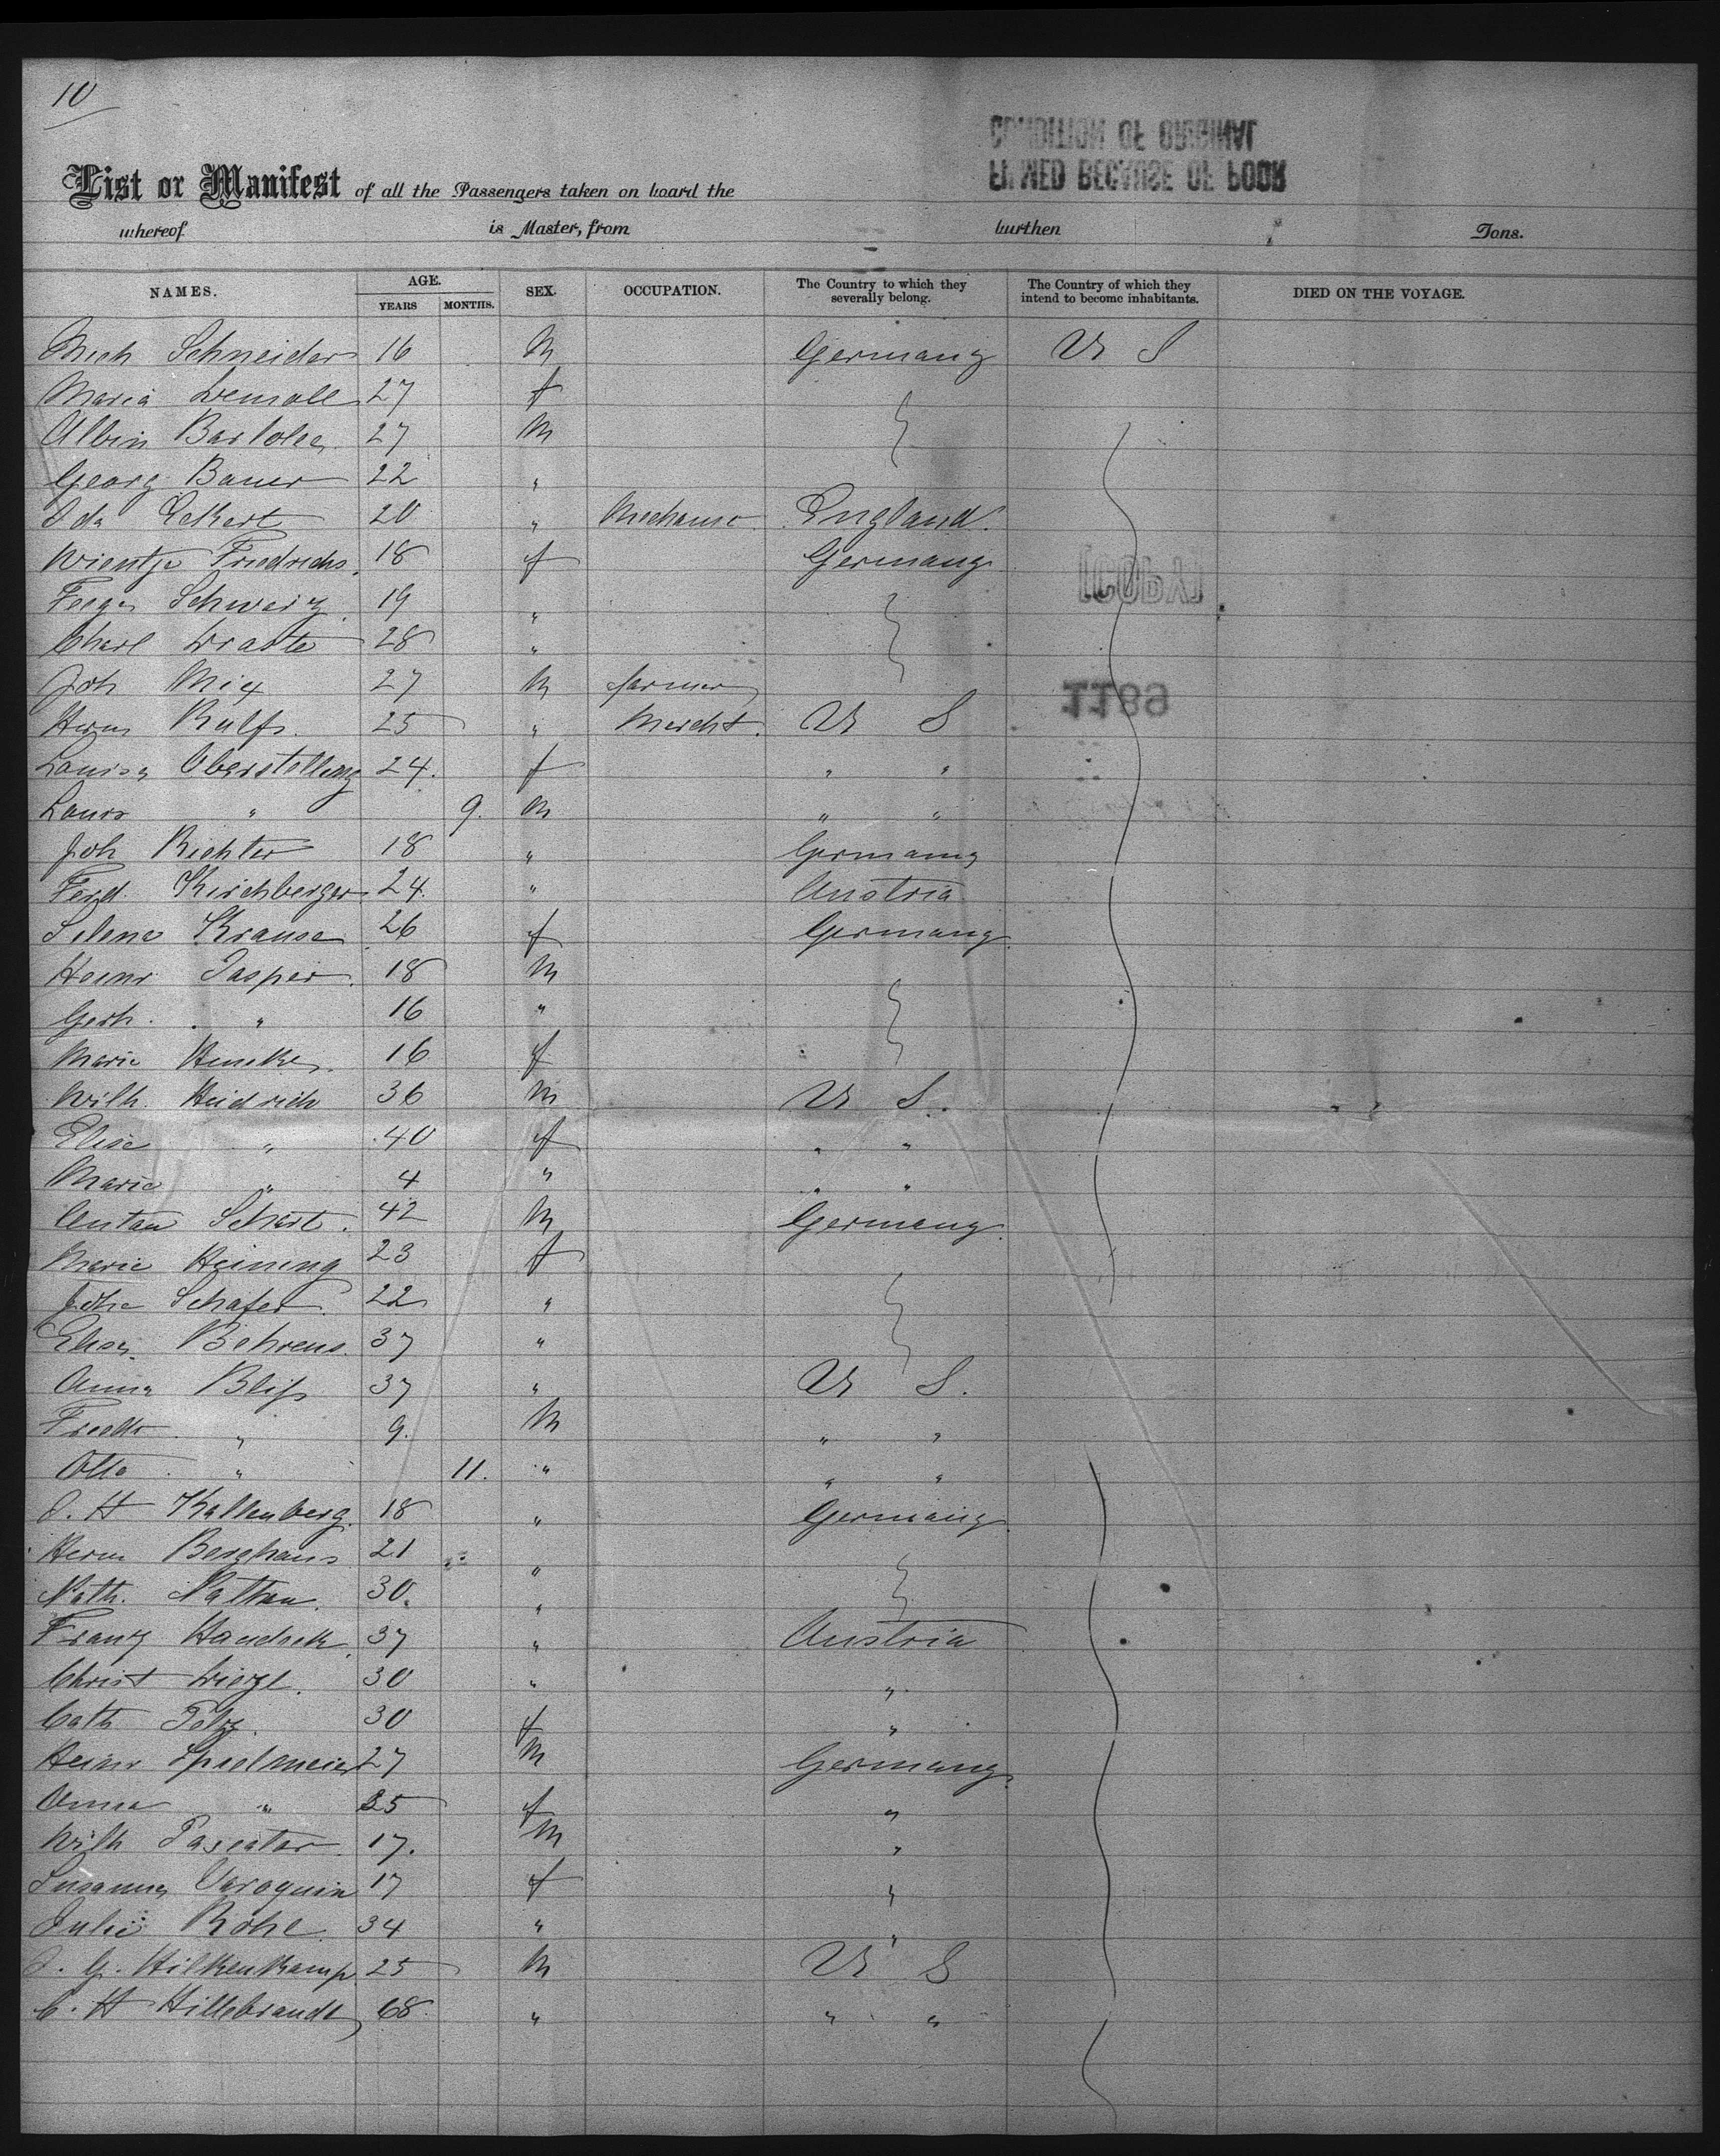 10
CONDITION OF ORIGINAL
FILMED BECAUSE OF POOR
List or Manifest of all the Passengers taken on board the
whereof is Master, from burthen Tons.
NAMES. AGE. YEARS MONTHS. SEX. OCCUPATION. The Country to which they severally belong. The Country of which they intend to become inhabitants. DIED ON THE VOYAGE.
Mich Schneider 16 M Germany U S
Maria 27 f
Albin 27 M
Georg Bauer 22 "
Ida Eckert 20 " Mechanic England
Wientje Friedrichs 18 f Germany
[COPY]
Schwarz 19 "
Charl 28 "
Joh Mix 27 M farmer
1189
Herm Rulfs 25 " Mercht. U S
Louisa Oberstelling 24. f " "
Louis " 9. M " "
Joh Richter 18 " Germany
Ferd. Kirchberger 24. " Austria
Selena Krause 26 f Germany
Heinr Jasper 18 M
Gerh. " 16 "
Marie 16 f
Wilh. Heidrich 36 M U S.
Elise " 40 f " "
Marie " 4 " " "
Anton Schart. 42 M Germany
Marie Heining 23 f
Schafer 22 "
Elisa Behrens 37 "
Anna Bliss 37 " U S.
Friedr. " 9. M " "
Otto " 11. " " "
J. H Kallenberg. 18 " Germany
Herm Berghaus 21 "
Nath. Nathan. 30. "
Franz 37 " Austria
Christ 30 " "
Cath 30 f "
Heinr Spielmeier 27 M Germany
Anna " 25 f "
Wilh Pascator 17. M "
Susanna Varoquin 17 f "
Julie Röhe 34 " "
J. G. Hilkenkamp 25 M U S
C. H Hillebrandt 68. " " "